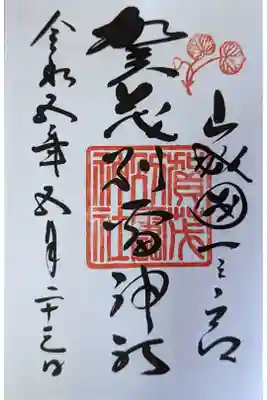 山城國一之宮
賀茂別雷神社
令和五年五月二十三日
賀茂
別雷
神社